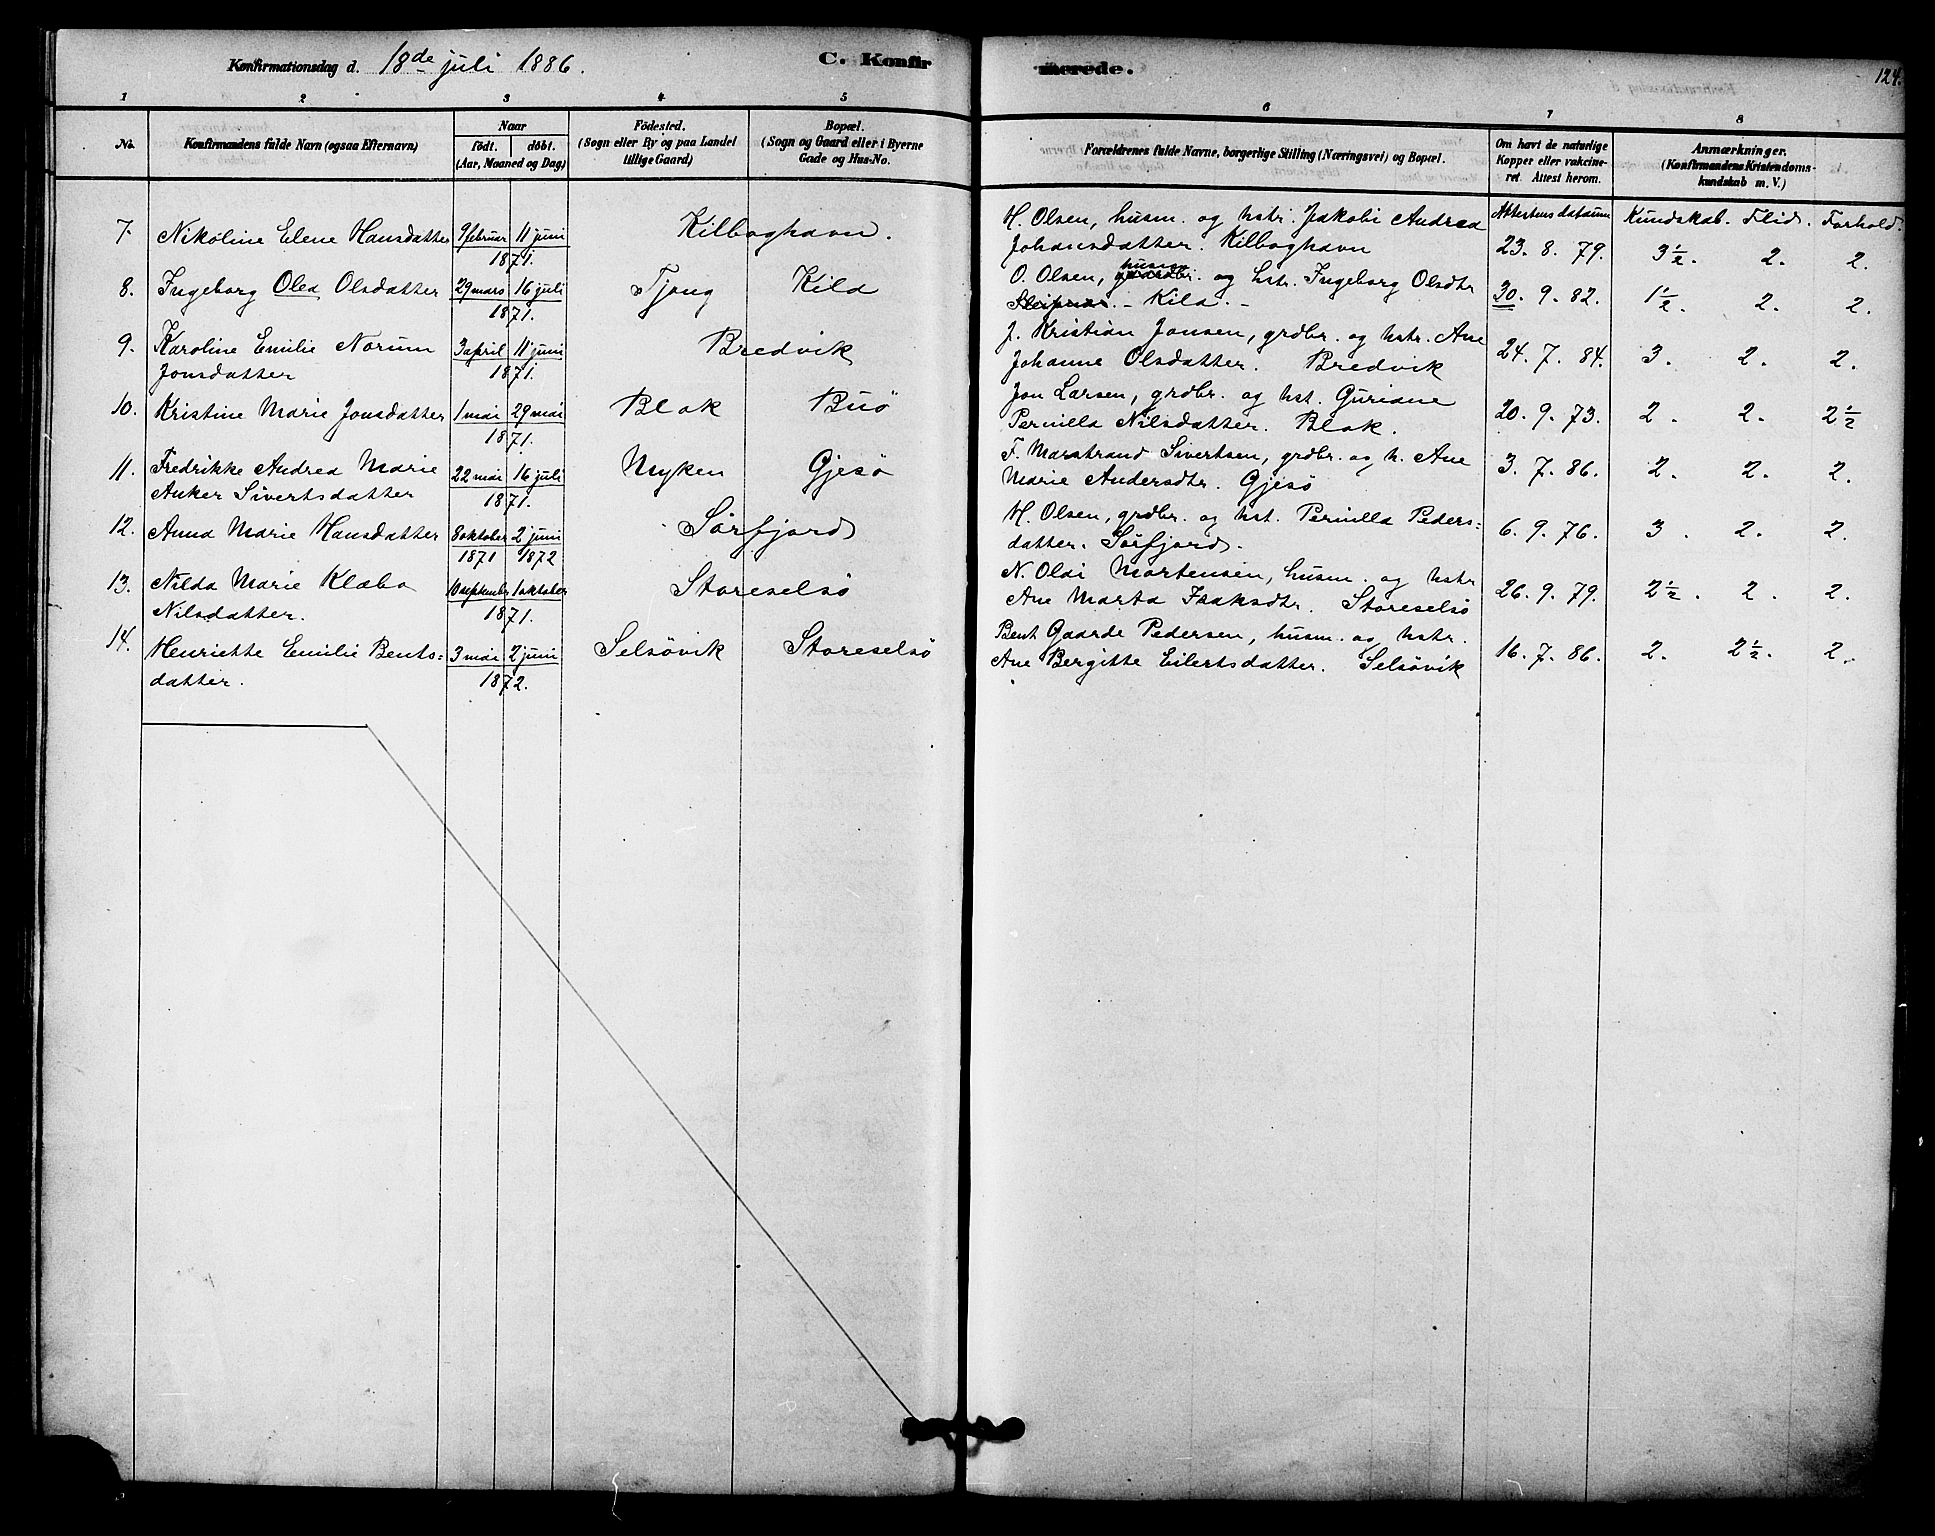 Konfirmationsdag d. 18de juli 1886. C. Konfirmerede. 124.
1 2 3 4 5 6 7 8
No. Konfirmandens fulde Navn (ogsaa Efternavn) Naar födt. döbt. (Aar, Maaned og Dag) Födested. (Sogn eller By og paa Landet tillige Gaard) Bopæl. (Sogn og Gaard eller i Byerne Gade og Hus-No. Forældrenes fulde Navne, borgerlige Stilling (Næringsvei) og Bopæl. Om havt de naturlige Kopper eller vakcineret. Attest herom. Anmærkninger. (Konfirmandens Kristendomskundskab m. V.)
Attestens datum Kundskab. Flid. Forhold.
7. Nikoline Elene Hansdatter 9 februar 11 juni Kilboghavn. H. Olsen, husm. og hstr. Jakobi Andrea
1871. Johansdatter. Kilboghavn 23. 8. 79. 3½. 2. 2.
8. Ingeborg Olea Olsdatter 29 mars 16 juli Tjong Kila O. Olsen, gaardbr. husm og hstr. Ingeborg Olsdtr
1871. Sleipnes. - Kila. - 30. 9. 82. 1½. 2. 2.
9. Karoline Emilie Norum 3 april 11 juni Bredvik J. Kristian Jonsen, grdbr. og hstr. Ane
Jonsdatter 1871. Johanne Olsdatter. Bredvik 24. 7. 84. 3. 2. 2.
10. Kristine Marie Jonsdatter 1 mai 29 mai Blok Buö Jon Larsen, grdbr. og hst. Guriane
1871. Pernilla Nilsdatter. Blok. 20. 9. 73. 2. 2. 2½
11. Fredrikke Andrea Marie 22 mai 16 juli Myken Gjesö F. Marstrand Sivertsen, grdbr. og h. Ane
Anker Sivertsdatter 1871. Marie Andersdtr. Gjesö 3. 7. 86. 2. 2. 2.
12. Anna Marie Hansdatter 8 oktober 2 juni Sörfjord H. Olsen, grdbr. og hst. Pernilla Peders=
1871 1872 datter. Sörfjord. 6. 9. 76. 3. 2. 2.
13. Nilda Marie Klæbo 10 september 1 oktober Storeselsö N. Oldi Mortensen, husm. og hstr
Nilsdatter. 1871. Ane Marta Isaksdtr. Storeselsö 26. 9. 79. 2½. 2. 2.
14. Henriette Emilie Bents= 3 mai 2 juni Selsövik Storeselsö Bent Gaarde Pedersen, husm. og hstr.
datter. 1872. Ane Bergitte Eilertsdatter. Selsövik 16. 7. 86. 2. 2½. 2.